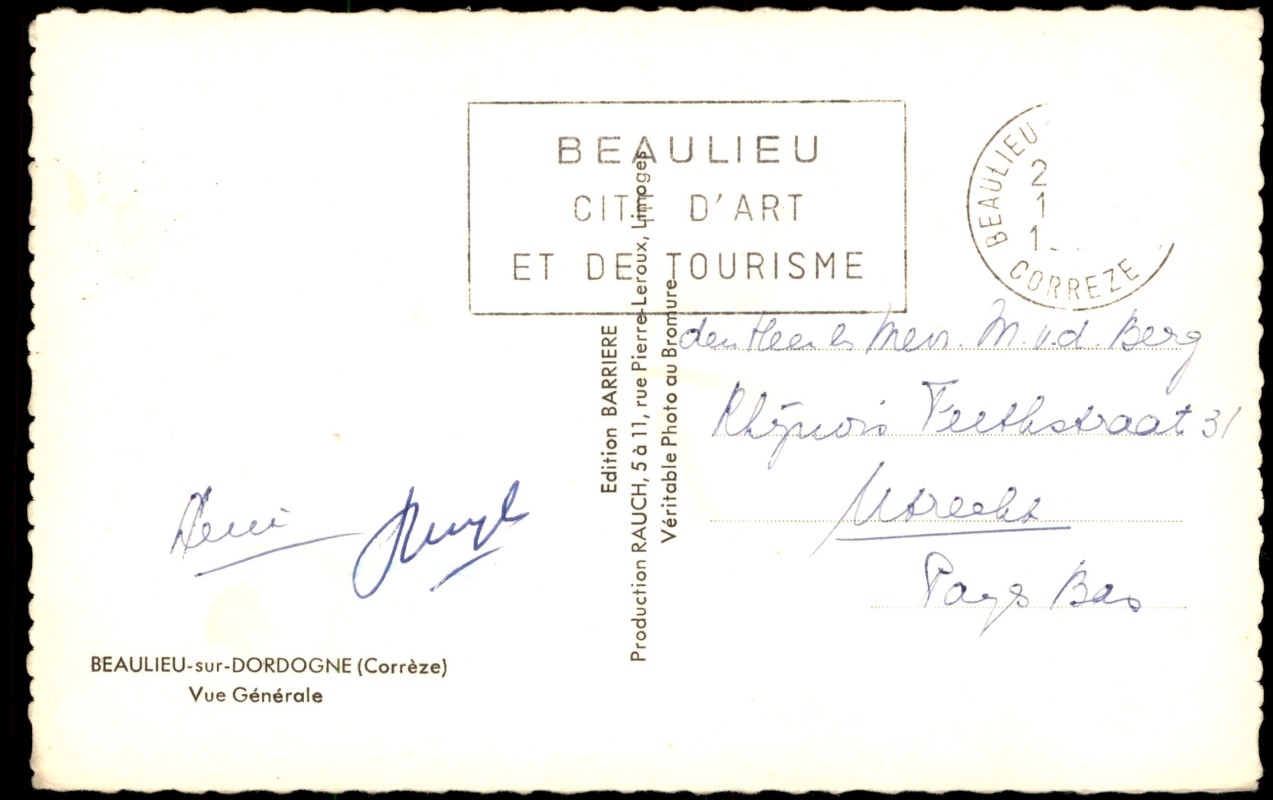 BEAULIEU
CITÉ D'ART
ET DE TOURISME
BEAULIEU
2
1
1
CORREZE
den Heer en Mevr. M. v.d. Berg
Feithstraat 31
Utrecht
Pays Bas
Edition BARRIERE
Production RAUCH, 5 à 11, rue Pierre-Leroux, Limoges
Véritable Photo au Bromure
BEAULIEU-sur-DORDOGNE (Corrèze)
Vue Générale